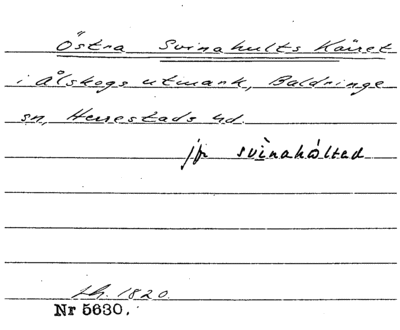 Östra Svinahults Käret
i Ålskogs utmark, Baldringe
sn, Herrestads hd.
jfr svìnahóltad
1820.
Nr 5630.